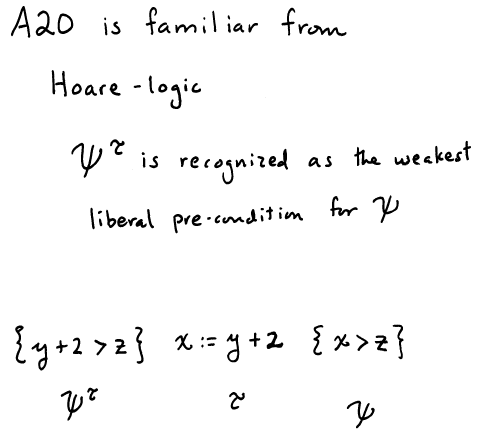 A20 is familiar from
Hoare-logic
ψ^τ is recognized as the weakest
liberal pre-condition for ψ
{y+2>z} x:=y+2 {x>z}
ψ^τ τ ψ